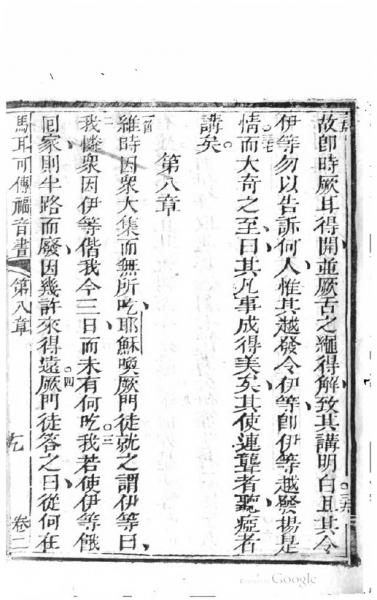 故即時厥耳得開並厥舌之繩得解致其講明白且其令
伊等勿以告訴何人惟其越發令伊等即伊等越發揚是
情而大奇之至曰其凡事成得美矣其使連聾者聽瘂者
講矣
第八章
維時因衆大集而無所吃耶穌喚厥門徒就之謂伊等曰
我憐衆因伊等偕我今三日而未有何吃我若使伊等餓
囘家則半路而廢因幾許來得遠厥門徒答之曰從何在
馬耳可傳福音書 第八章 卷二
Google